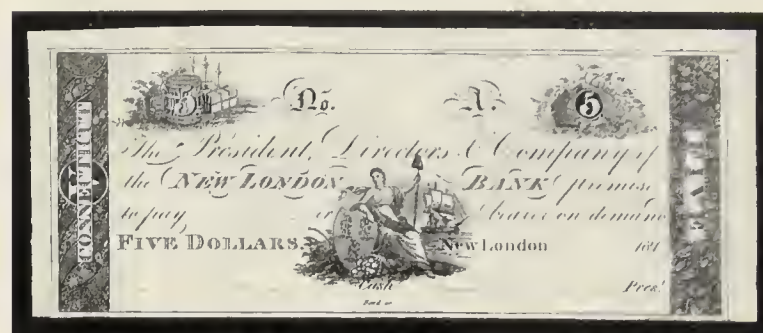 CONNECTICUT
5
No.
A.
5
The President, Directors & Company of
the NEW LONDON BANK promise
to pay or bearer on demand
FIVE DOLLARS. New London 181
Cash Pres.t
FIVE